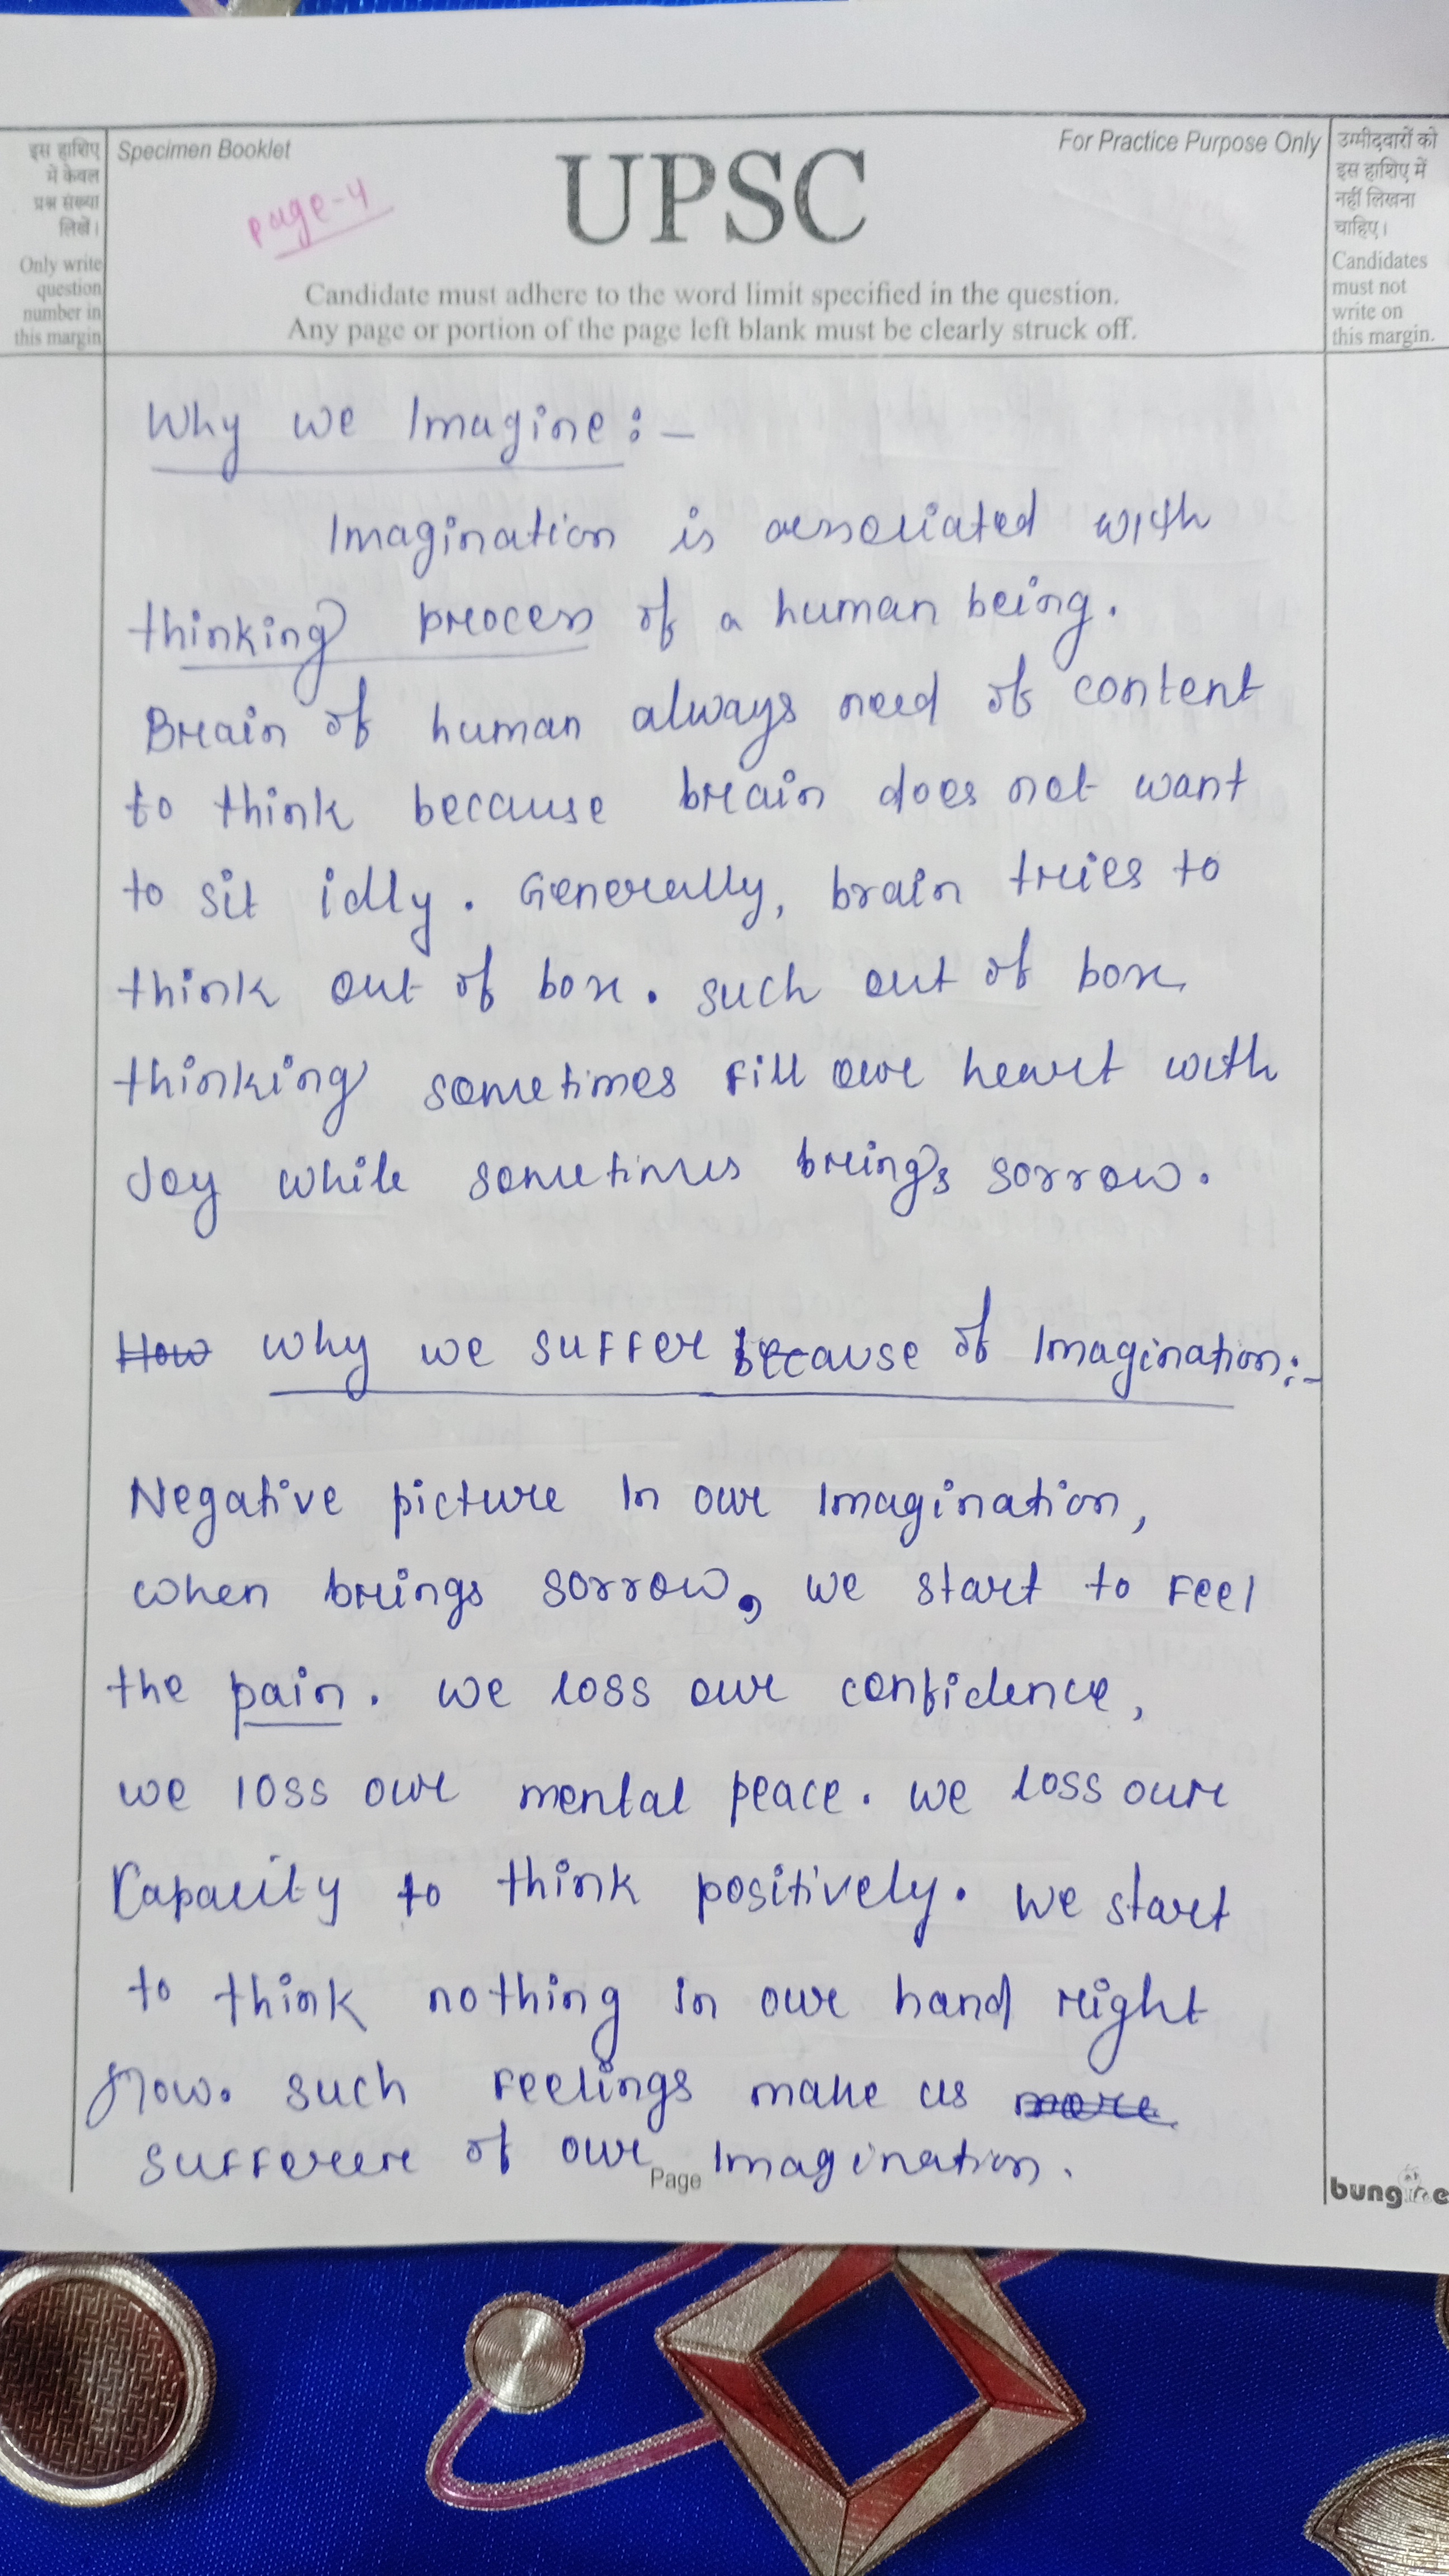 इस हाशिए
में केवल
प्रश्न संख्या
लिखें।
Only write
question
number in
this margin
Specimen Booklet
For Practice Purpose Only
page-4
UPSC
Candidate must adhere to the word limit specified in the question.
Any page or portion of the page left blank must be clearly struck off.
उम्मीदवारों को
इस हाशिए में
नहीं लिखना
चाहिए।
Candidates
must not
write on
this margin.
Why we Imagine :-
Imagination is associated with
thinking process of a human being.
Brain of human always need of content
to think because brain does not want
to sit idly. Generally, brain tries to
think out of box. such out of box
thinking sometimes fill our heart with
Joy while sometimes brings sorrow.
How Why we suffer because of Imagination:-
Negative picture In our Imagination,
when brings sorrow, we start to Feel
the pain. we loss our confidence,
we loss our mental peace. we loss our
Capacity to think positively. We start
to think nothing in our hand right
now. such Feelings make us more
sufferer of our Imagination.
Page